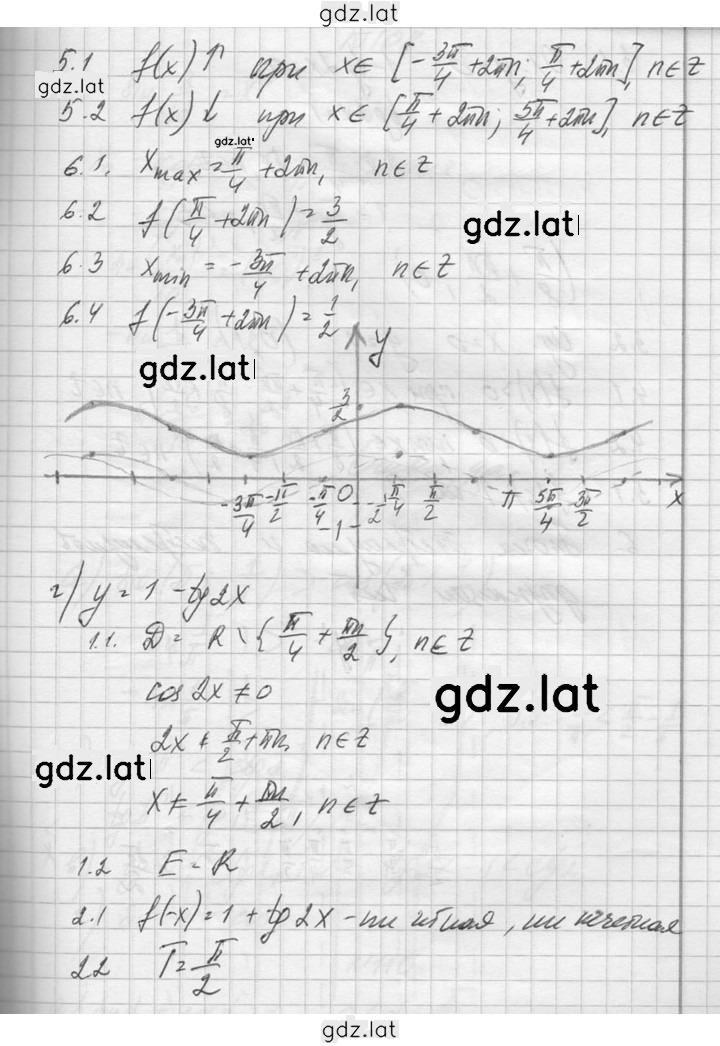 gdz.lat
5.1 f(x) ↑ при x ∈ [-3π/4 + 2πn; π/4 + 2πn], n ∈ Z
gdz.lat
5.2 f(x) ↓ при x ∈ [π/4 + 2πn; 5π/4 + 2πn], n ∈ Z
gdz.lat
6.1. x max = π/4 + 2πn, n ∈ Z
6.2 f(π/4 + 2πn) = 3/2
gdz.lat
6.3 x min = -3π/4 + 2πn, n ∈ Z
6.4 f(-3π/4 + 2πn) = 1/2
y
gdz.lat
3/2
-3π/4 -π/2 -π/4 0 -1/2 π/4 π/2 π 5π/4 3π/2 x
-1
г) y = 1 - tg 2x
1.1. D = R \ {π/4 + πn/2}, n ∈ Z
cos 2x ≠ 0
gdz.lat
2x ≠ π/2 + πn, n ∈ Z
gdz.lat
x ≠ π/4 + πn/2, n ∈ Z
1.2 E = R
2.1 f(-x) = 1 + tg 2x - ни четная, ни нечетная
2.2 T = π/2
gdz.lat